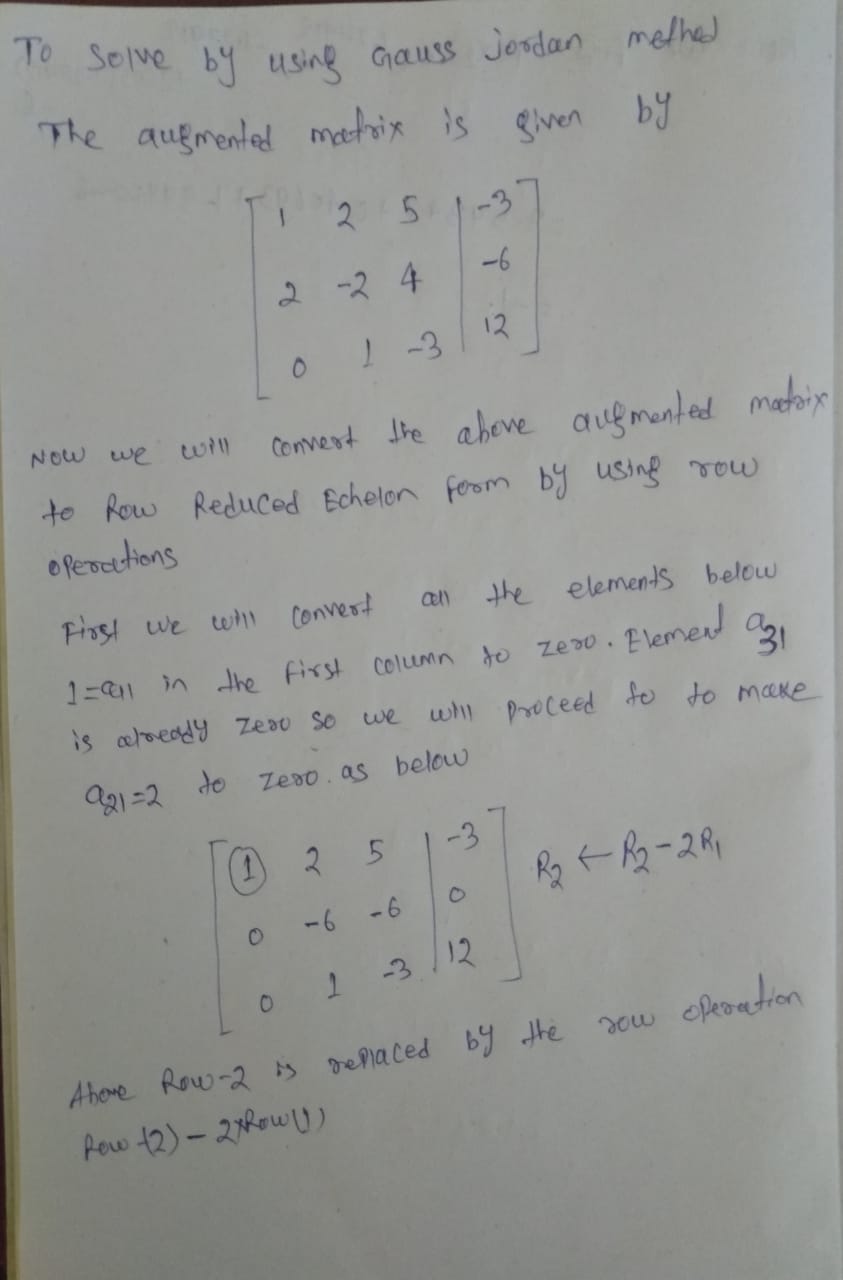 To Solve by using Gauss jordan method
The augmented matrix is given by
[ 1 2 5 | -3 ]
[ 2 -2 4 | -6 ]
[ 0 1 -3 | 12 ]
NOW we will convert the above augmented matrix
to Row Reduced Echelon form by using row
operations
First we will convert all the elements below
1=a11 in the first column to zero. Element a31
is already zero so we will proceed to to make
a21=2 to zero. as below
[ ① 2 5 | -3 ]
[ 0 -6 -6 | 0 ] R2 ← R2-2R1
[ 0 1 -3 | 12 ]
Above Row-2 is replaced by the row operation
Row (2) - 2×Row(1)